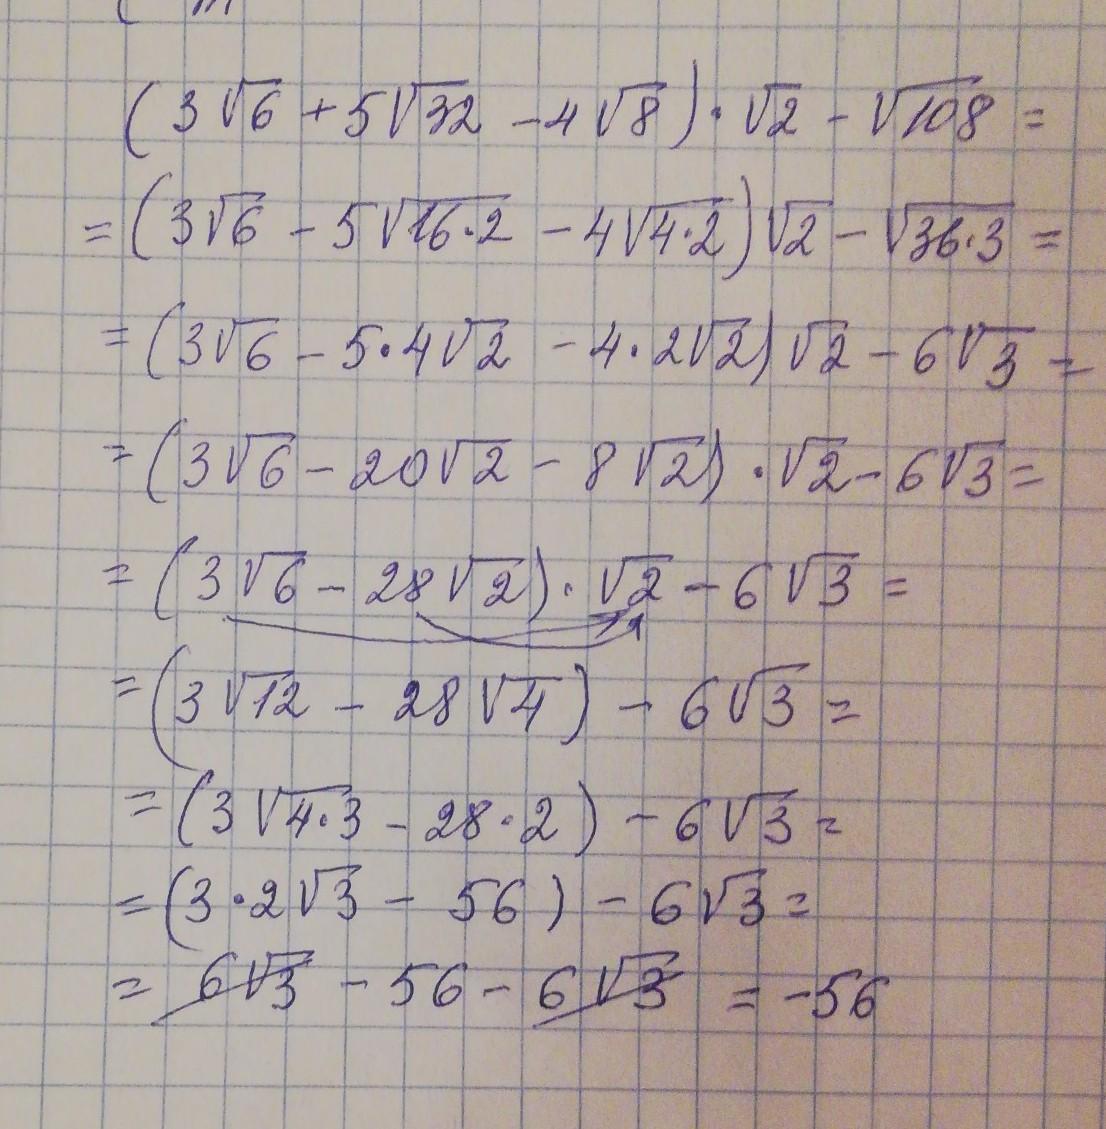 (3√6 + 5√32 - 4√8) · √2 - √108 =
= (3√6 - 5√16·2 - 4√4·2)√2 - √36·3 =
= (3√6 - 5·4√2 - 4·2√2)√2 - 6√3 =
= (3√6 - 20√2 - 8√2) · √2 - 6√3 =
= (3√6 - 28√2) · √2 - 6√3 =
= (3√12 - 28√4) - 6√3 =
= (3√4·3 - 28·2) - 6√3 =
= (3·2√3 - 56) - 6√3 =
= 6√3 - 56 - 6√3 = -56